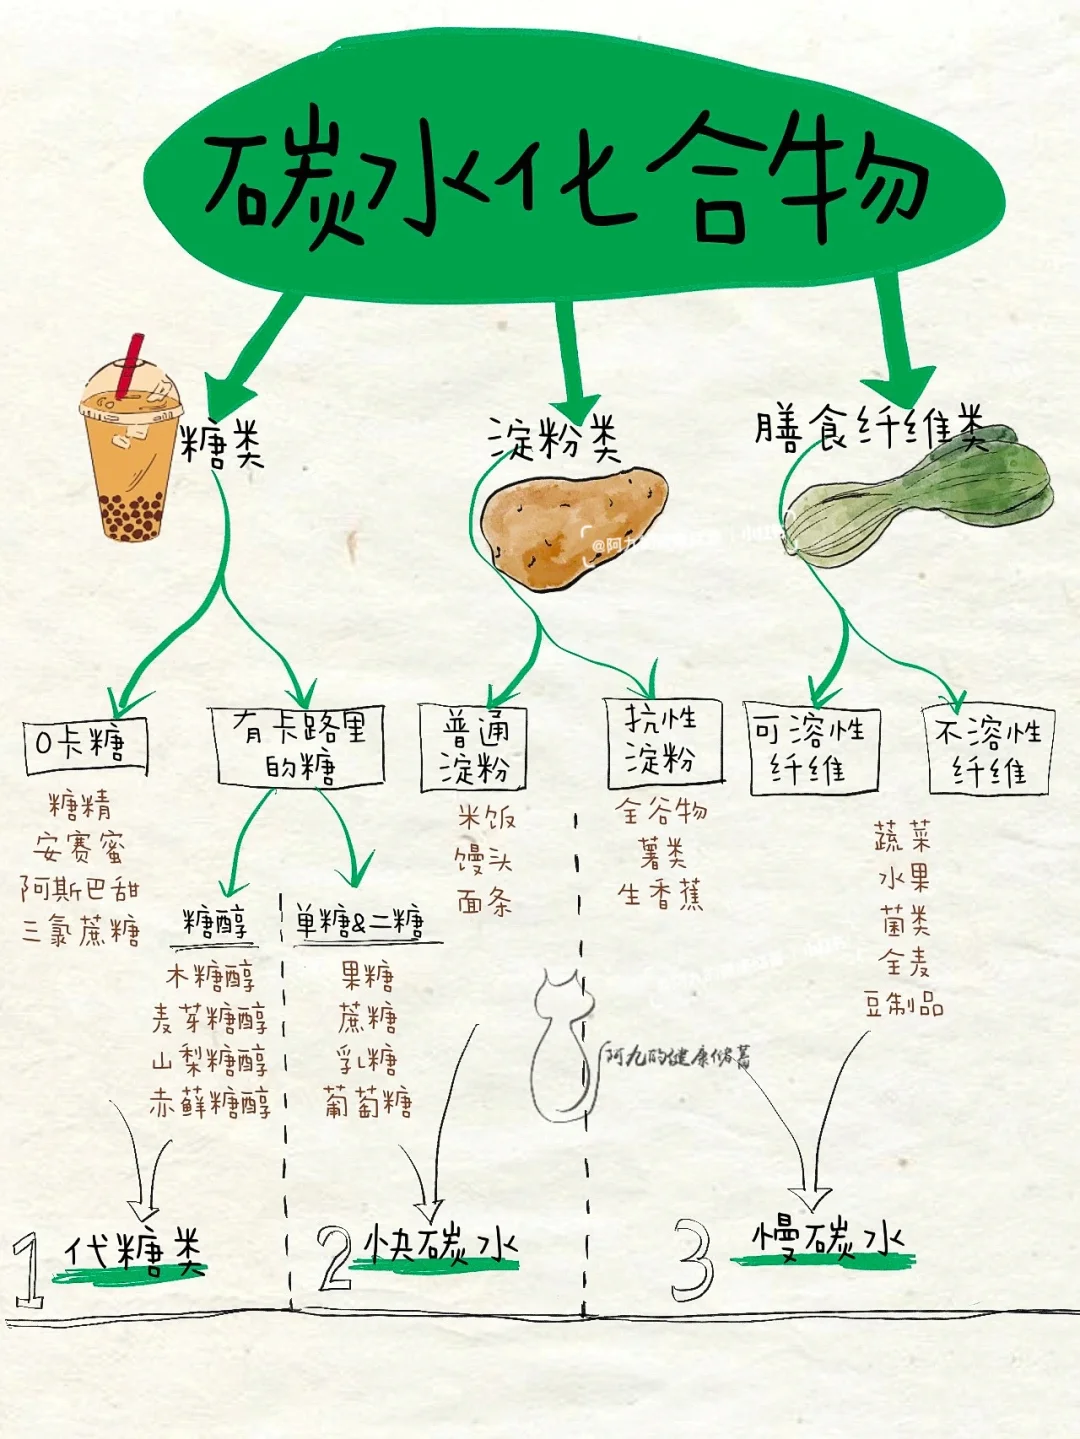 碳水化合物
糖类
淀粉类
膳食纤维类
@阿九
0卡糖
有卡路里
的糖
普通
淀粉
抗性
淀粉
可溶性
纤维
不溶性
纤维
糖精
安赛蜜
阿斯巴甜
三氯蔗糖
糖醇
木糖醇
麦芽糖醇
山梨糖醇
赤藓糖醇
单糖&二糖
果糖
蔗糖
乳糖
葡萄糖
米饭
馒头
面条
全谷物
薯类
生香蕉
蔬菜
水果
菌类
全麦
豆制品
阿九的健康储蓄
1 代糖类
2 快碳水
3 慢碳水